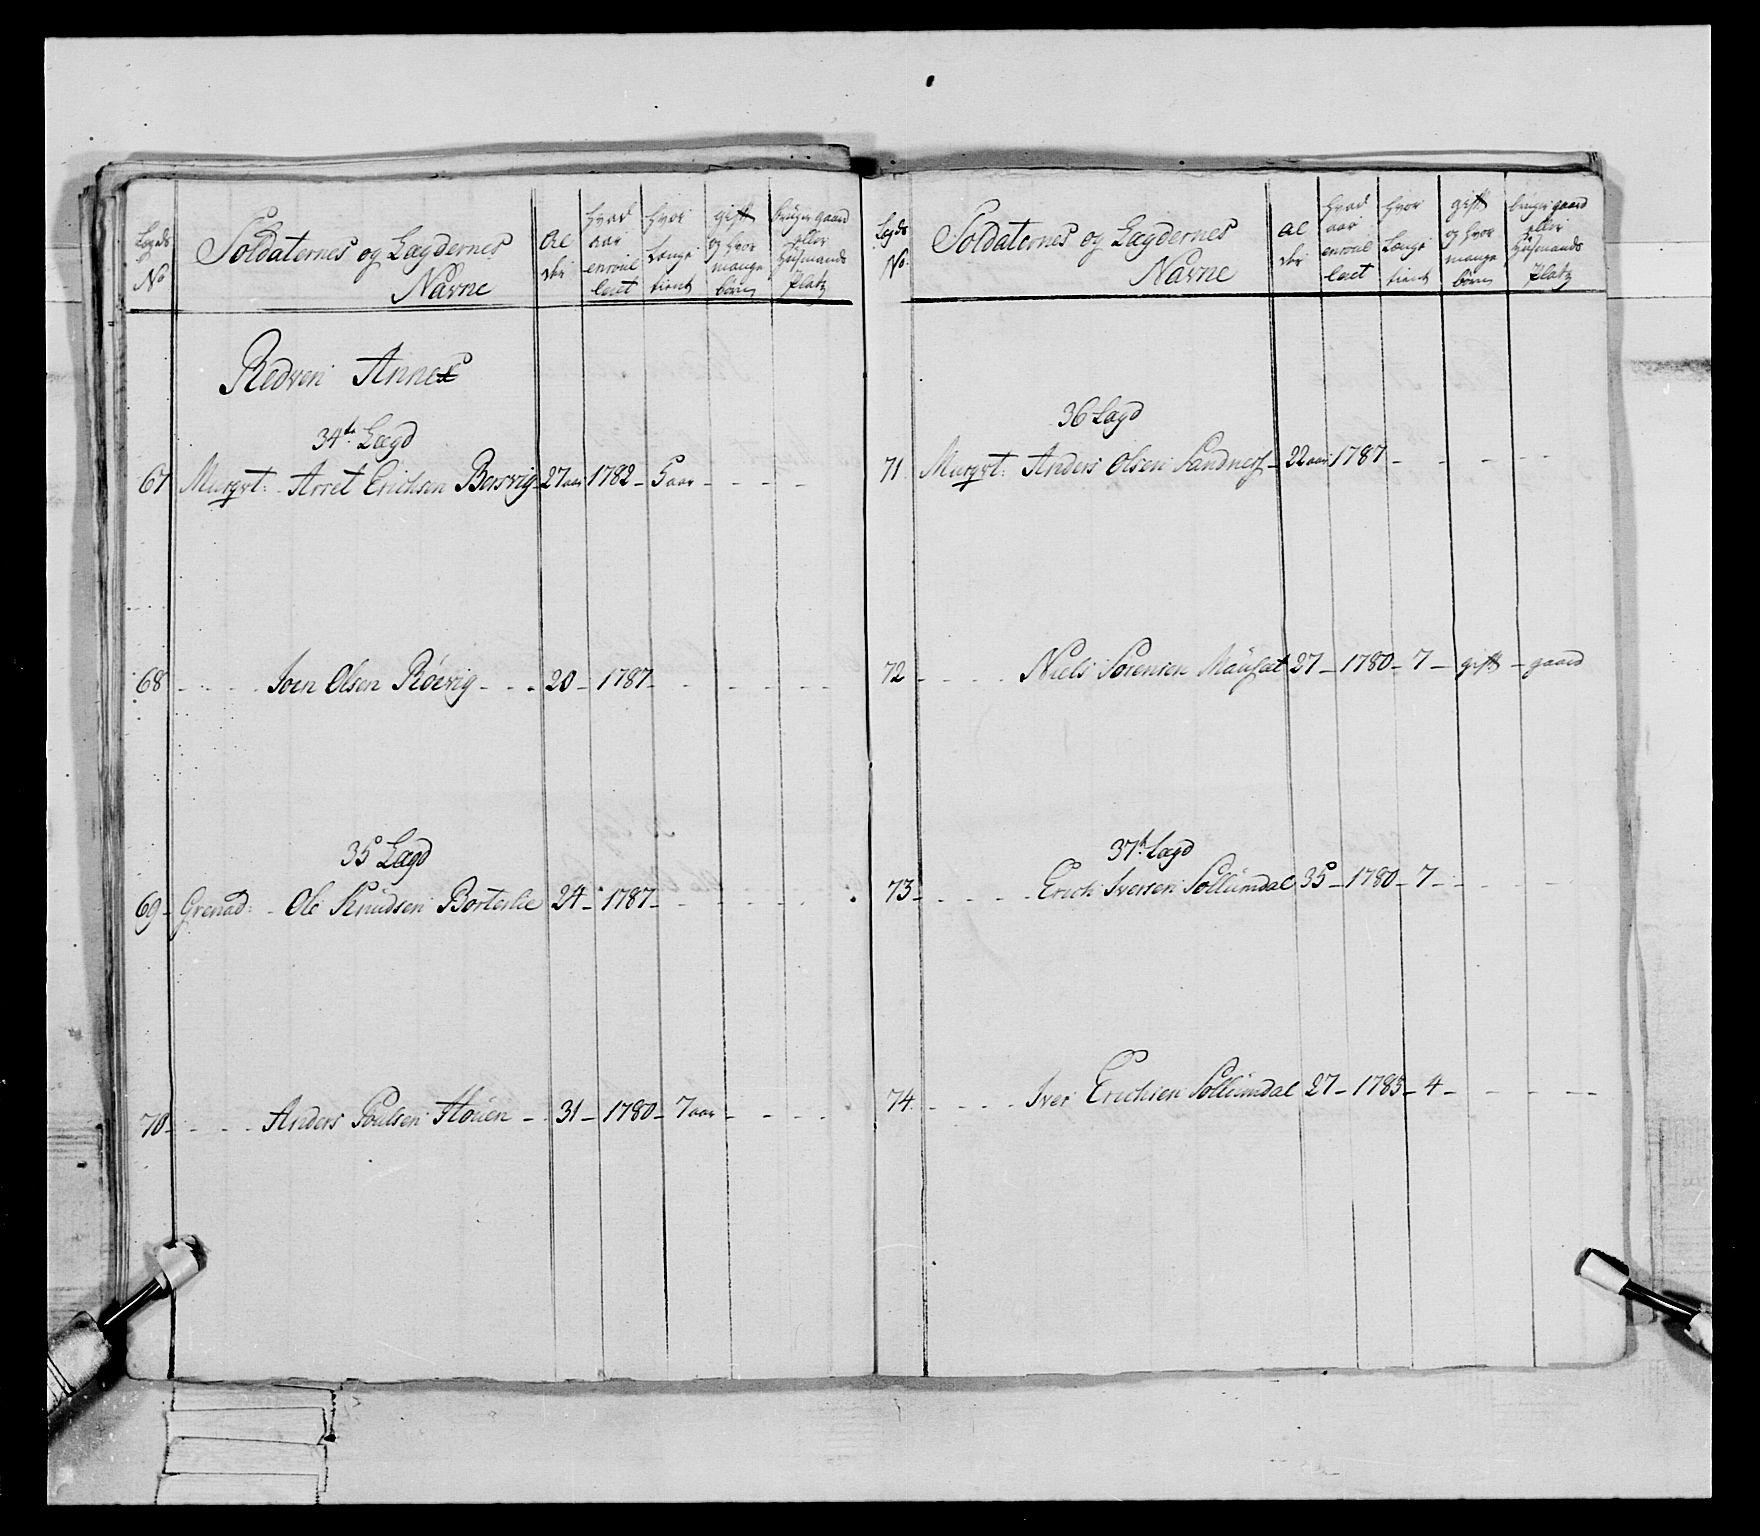 Lægds No
Soldaternes og Lægdernes Navne
Al der
hvad aar enroul leret
hvor længe tient
gift og hvor mange børn
bruger gaard eller Huusmands Platz
Redven Annex
34te Lægd
67 Murqvt: Arret Erichsen Borsvig 27 aar 1782 - 5 aar - - - -
68 - - - - Joen Olsen Röevig - - - 20 - 1787 - - - - - -
35 Lægd
69 - Grenad: - Ole Knudsen Borterlie 24 - 1787 - - - - - -
70 - - - - Anders Poulsen Houen - - 31 - 1780 - 7 aar - - - -
Lægds No.
Soldaternes og Lægdernes Navne
Al der
hvad aar enroul leret
hvor længe tient
gift og hvor mange børn
bruger gaard eller Huusmands Platz
36 Lægd
71 Murqvt: Anders Olsen Sandnes - 22 aar 1787 - - - - -
72 - - - - Niels Sörensen 27 - 1780 - 7 - gift - gaard
37te Lægd
73 - - - - - Erich Iversen Sollümdal 35 - 1780 - 7 - - - - -
74 - - - - Iver Erichsen Sollümdal 27 - 1783 - 4 - - - - -